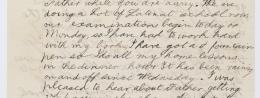 Father while you are away. We are
doing a lot of
our examinations begin to-day
Monday so I have had to work hard
with my books. I have got a fountain
pen so I do all my home lessons
in the dinner hour. It has been raining
on and off since Wednesday. I was
pleased to hear about Father getting